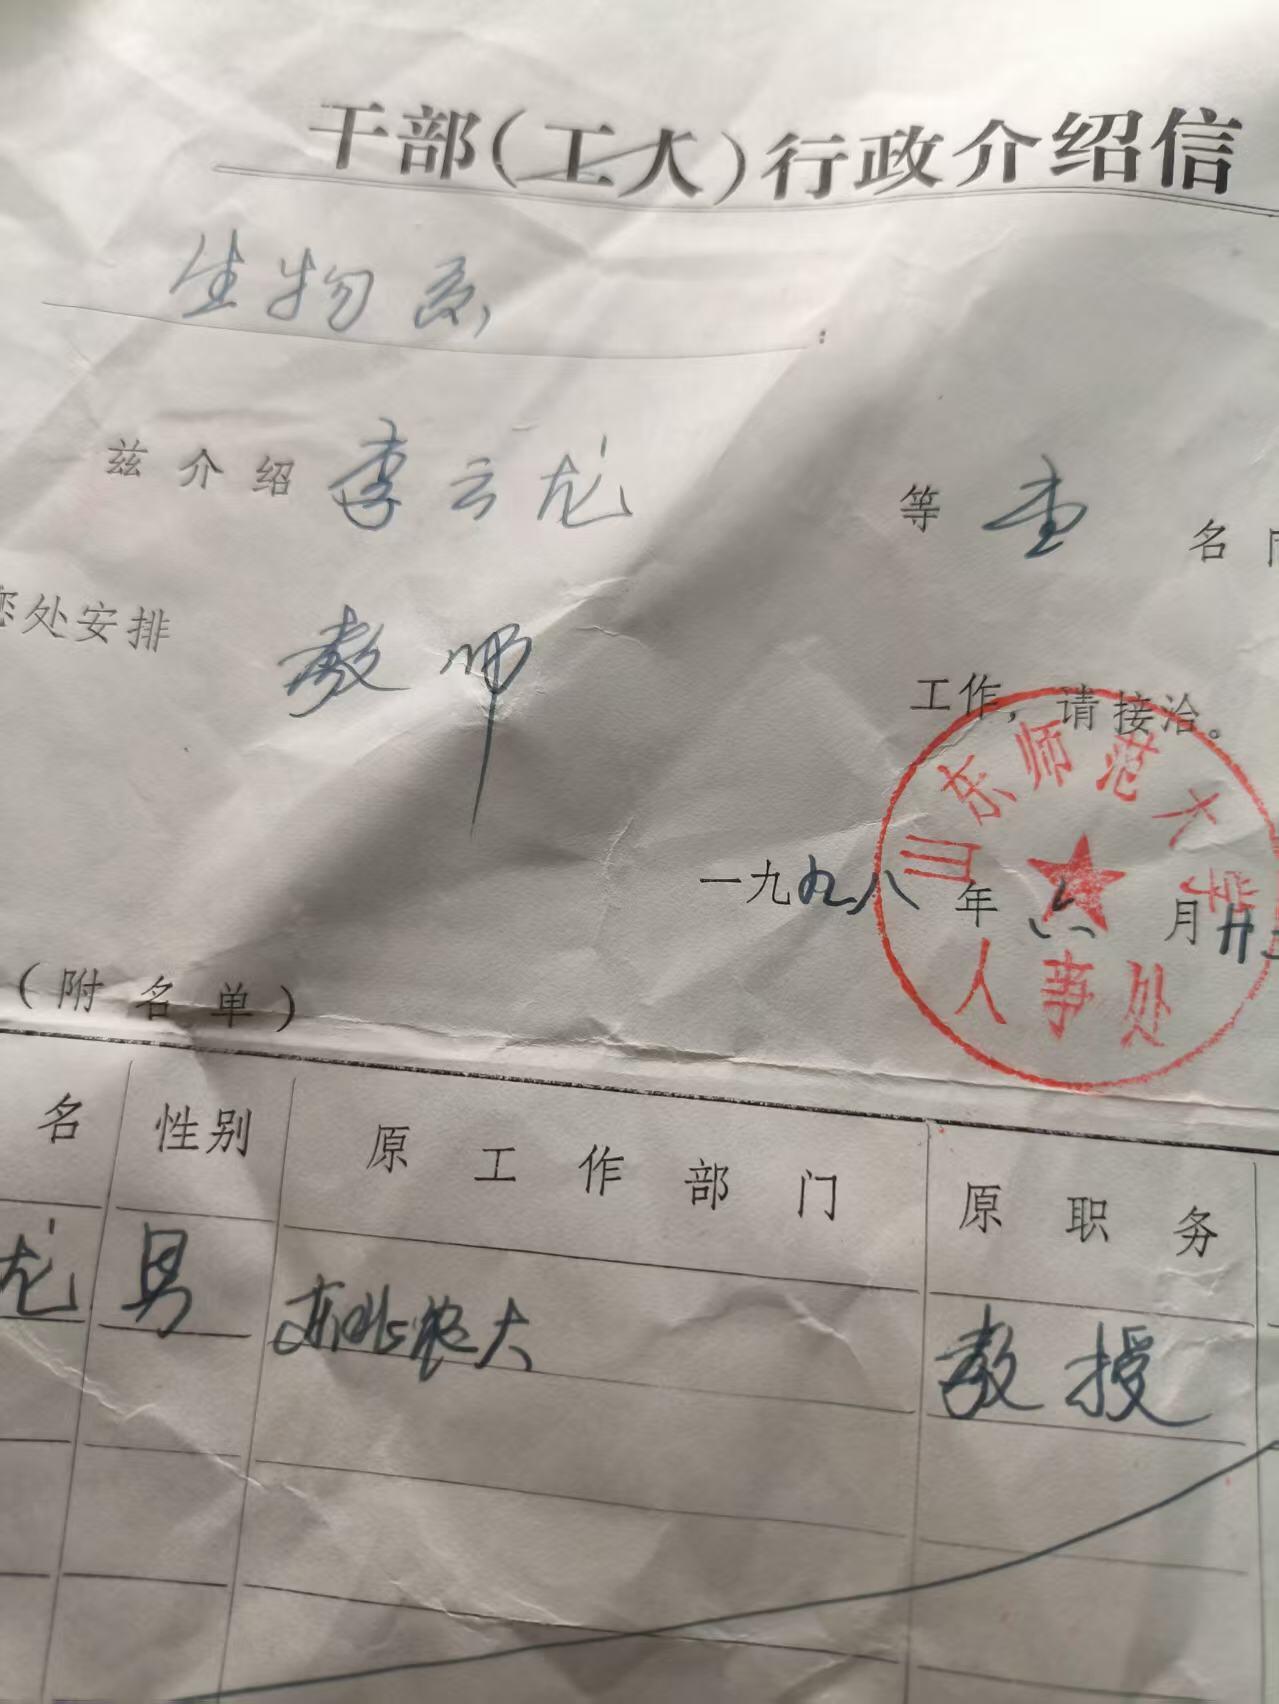 干部(工人)行政介绍信
生物系:
兹介绍 李云龙 等 壹 名
您处安排 教师
工作,请接洽。
山东师范大学
人事处
一九九八年六月廿
(附名单)
名 性别 原工作部门 原职务
龙 男 东北农大 教授